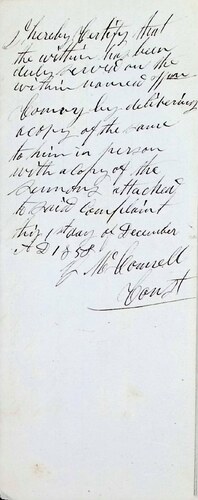 I hereby Certify that
the within has been
duly served on the
within named
Conroy by delivering
a copy of the same
to him in person
with a copy of the
Summons attached
to said Complaint
this 1st day of December
A D 1858
McConnell
Const